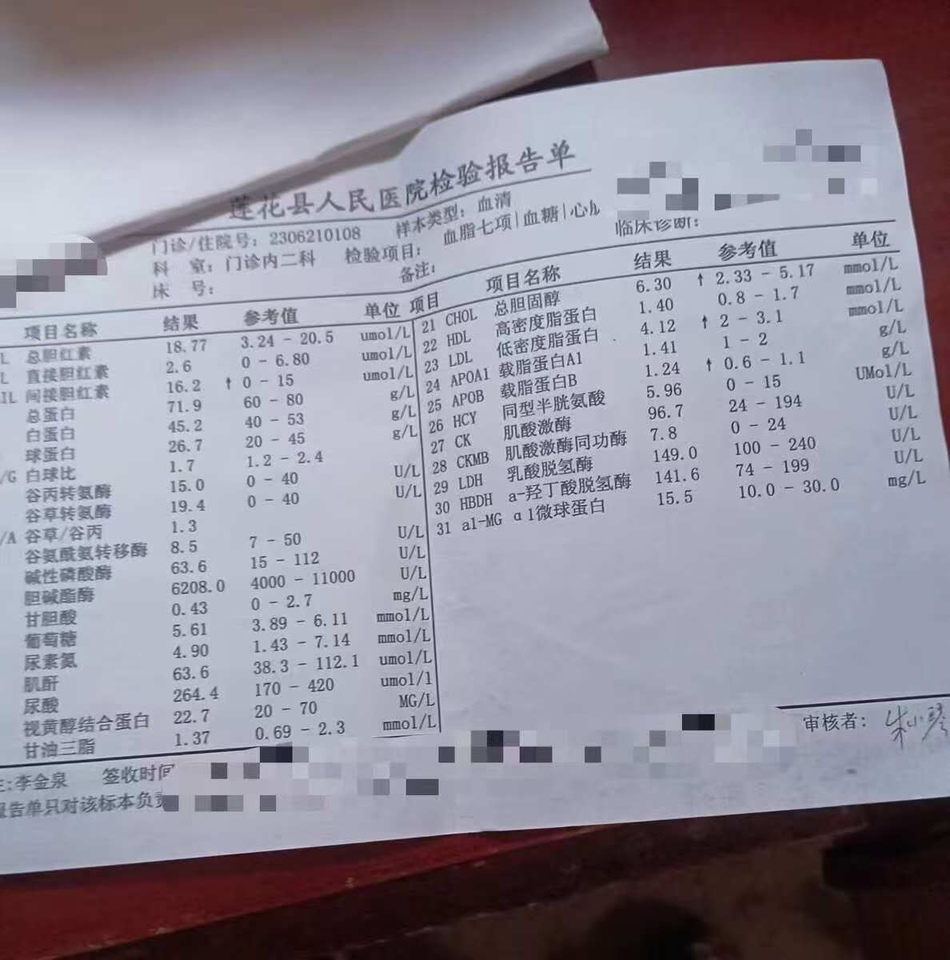 莲花县人民医院检验报告单
门诊/住院号: 2306210108 样本类型: 血清
科 室: 门诊内二科 检验项目: 血脂七项|血糖|心
床 号: 备注: 临床诊断:
项目名称 结果 参考值 单位
总胆红素 18.77 3.24 - 20.5 umol/L
直接胆红素 2.6 0 - 6.80 umol/L
IL 间接胆红素 16.2 ↑ 0 - 15 umol/L
总蛋白 71.9 60 - 80 g/L
白蛋白 45.2 40 - 53 g/L
球蛋白 26.7 20 - 45 g/L
/G 白球比 1.7 1.2 - 2.4
谷丙转氨酶 15.0 0 - 40 U/L
谷草转氨酶 19.4 0 - 40 U/L
/A 谷草/谷丙 1.3
谷氨酰氨转移酶 8.5 7 - 50 U/L
碱性磷酸酶 63.6 15 - 112 U/L
胆碱酯酶 6208.0 4000 - 11000 U/L
甘胆酸 0.43 0 - 2.7 mg/L
葡萄糖 5.61 3.89 - 6.11 mmol/L
尿素氮 4.90 1.43 - 7.14 mmol/L
肌酐 63.6 38.3 - 112.1 umol/L
尿酸 264.4 170 - 420 umol/l
视黄醇结合蛋白 22.7 20 - 70 MG/L
甘油三脂 1.37 0.69 - 2.3 mmol/L
项目 项目名称 结果 参考值 单位
21 CHOL 总胆固醇 6.30 ↑ 2.33 - 5.17 mmol/L
22 HDL 高密度脂蛋白 1.40 0.8 - 1.7 mmol/L
23 LDL 低密度脂蛋白 4.12 ↑ 2 - 3.1 mmol/L
24 APOA1 载脂蛋白A1 1.41 1 - 2 g/L
25 APOB 载脂蛋白B 1.24 ↑ 0.6 - 1.1 g/L
26 HCY 同型半胱氨酸 5.96 0 - 15 UMol/L
27 CK 肌酸激酶 96.7 24 - 194 U/L
28 CKMB 肌酸激酶同功酶 7.8 0 - 24 U/L
29 LDH 乳酸脱氢酶 149.0 100 - 240 U/L
30 HBDH a-羟丁酸脱氢酶 141.6 74 - 199 U/L
31 a1-MG α1微球蛋白 15.5 10.0 - 30.0 mg/L
李金泉 签收时间 审核者: 朱小琴
报告单只对该标本负责